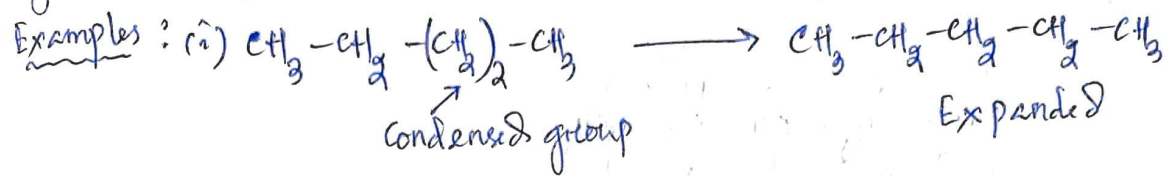 Examples : (i) CH₃ -CH₂ -(CH₂)₂ -CH₃ ⟶ CH₃ -CH₂ -CH₂ -CH₂ -CH₃
Condensed group
Expanded